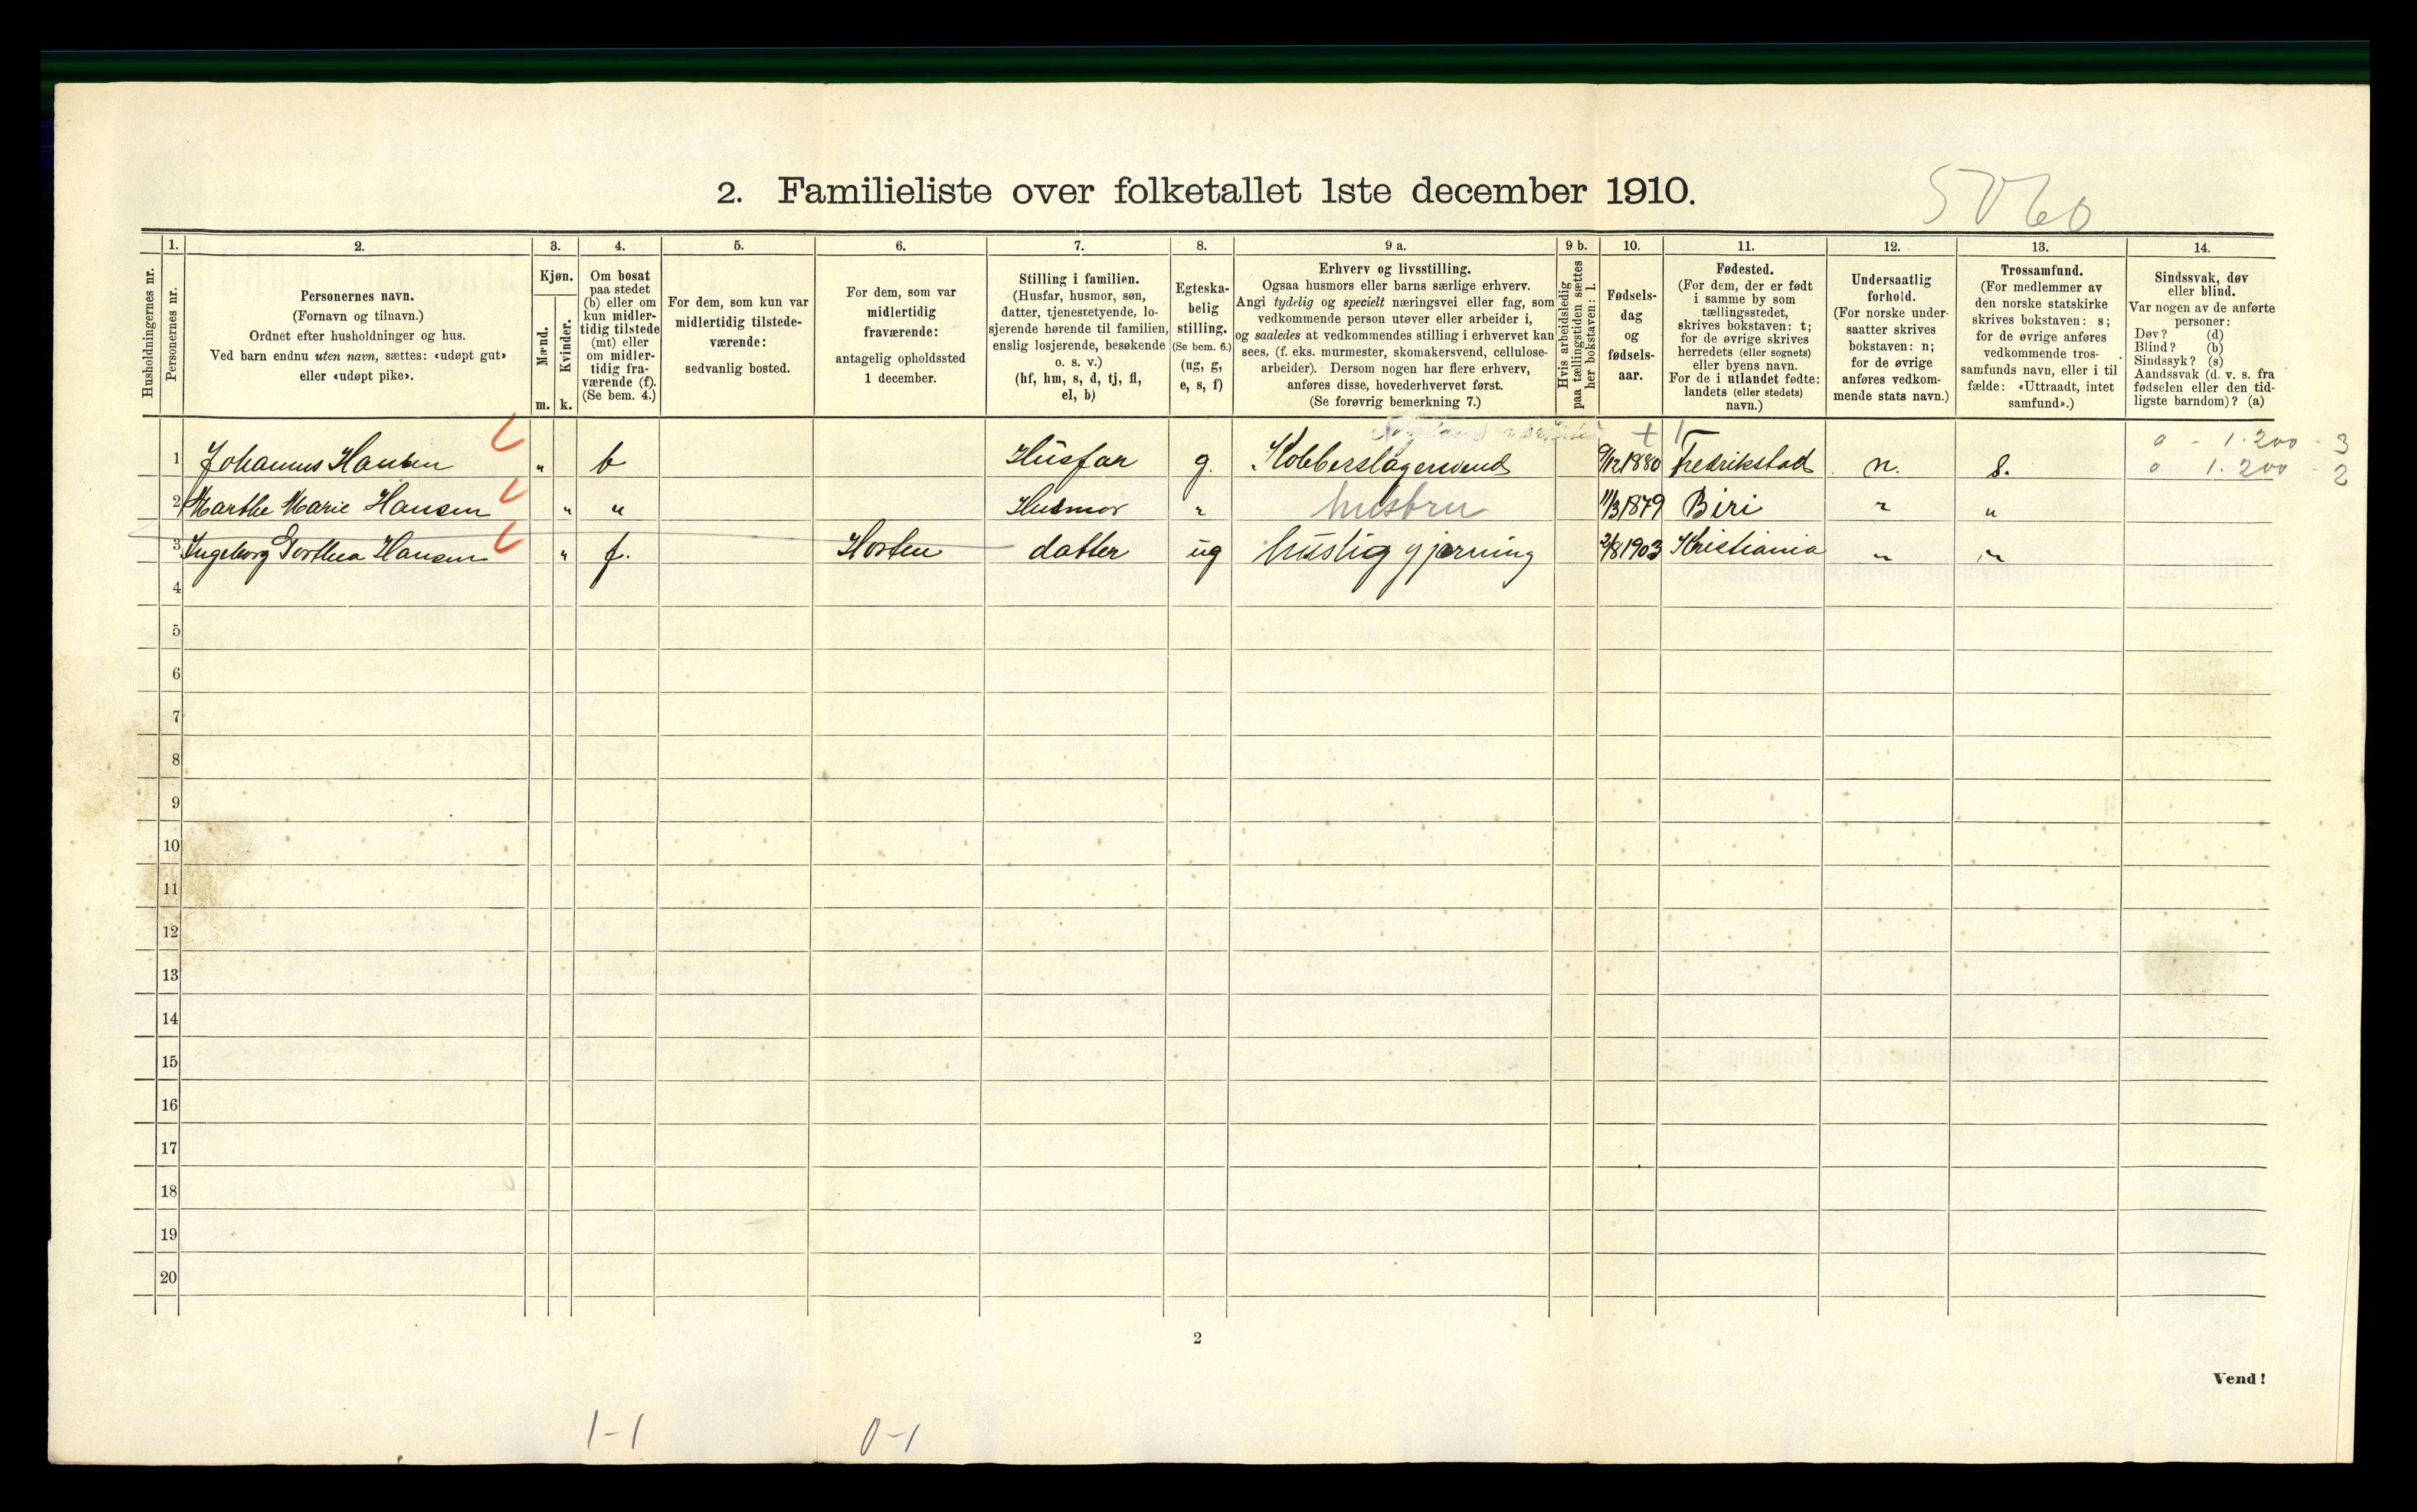 5060
2. Familieliste over folketallet 1ste december 1910.
Husholdningernes nr.
1. Personernes nr.
2. Personernes navn. (Fornavn og tilnavn.) Ordnet efter husholdninger og hus. Ved barn endnu uten navn, sættes: «udøpt gut» eller «udøpt pike».
3. Kjøn. Mænd. m. Kvinder. k.
4. Om bosat paa stedet (b) eller om kun midlertidig tilstede (mt) eller om midlertidig fraværende (f). (Se bem. 4.)
5. For dem, som kun var midlertidig tilstedeværende: sedvanlig bosted.
6. For dem, som var midlertidig fraværende: antagelig opholdssted 1 december.
7. Stilling i familien. (Husfar, husmor, søn, datter, tjenestetyende, losjerende hørende til familien, enslig losjerende, besøkende o. s. v.) (hf, hm, s, d, tj, fl, el, b)
8. Egteskabelig stilling. (Se bem. 6.) (ug, g, e, s, f)
9 a. Erhverv og livsstilling. Ogsaa husmors eller barns særlige erhverv. Angi tydelig og specielt næringsvei eller fag, som vedkommende person utøver eller arbeider i, og saaledes at vedkommendes stilling i erhvervet kan sees, (f. eks. murmester, skomakersvend, cellulosearbeider). Dersom nogen har flere erhverv, anføres disse, hovederhvervet først. (Se forøvrig bemerkning 7.)
9 b. Hvis arbeidsledig paa tællingstiden sættes her bokstaven: l.
10. Fødselsdag og fødselsaar.
11. Fødested. (For dem, der er født i samme by som tællingsstedet, skrives bokstaven: t; for de øvrige skrives herredets (eller sognets) eller byens navn. For de i utlandet fødte: landets (eller stedets) navn.)
12. Undersaatlig forhold. (For norske undersaatter skrives bokstaven: n; for de øvrige anføres vedkommende stats navn.)
13. Trossamfund. (For medlemmer av den norske statskirke skrives bokstaven: s; for de øvrige anføres vedkommende trossamfunds navn, eller i tilfælde: «Uttraadt, intet samfund».)
14. Sindssvak, døv eller blind. Var nogen av de anførte personer: Døv? (d) Blind? (b) Sindssyk? (s) Aandssvak (d. v. s. fra fødselen eller den tidligste barndom)? (a)
o - 1.200 - 3
1 Johannes Hansen " b Husfar g. Kobberslagersvend 9/12 1880 Fredrikstad n. s. o 1.200 - 2
2 Marthe Marie Hansen " " Husmor " husbru 11/3 1879 Biri " "
3 Ingeborg Dorthea Hansen " f. Horten datter ug huslig gjerning 2/8 1903 Kristiania " "
4
5
6
7
8
9
10
11
12
13
14
15
16
17
18
19
20
2
Vend!
1-1 0-1